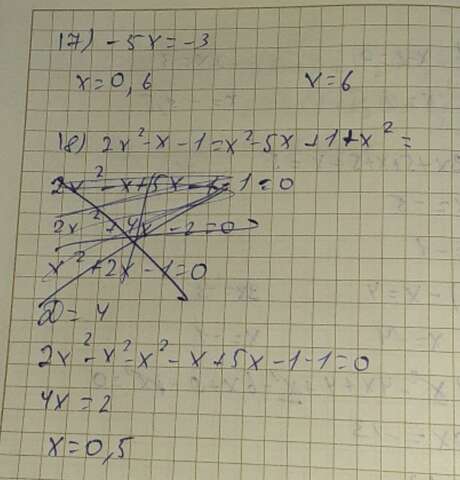 17) -5x=-3
x=0,6 x=6
18) 2x²-x-1=x²-5x+1+x²=
2x²-x+5x-1-1=0
2x²+4x-2=0
x²+2x-1=0
D=4
2x²-x²-x²-x+5x-1-1=0
4x=2
x=0,5